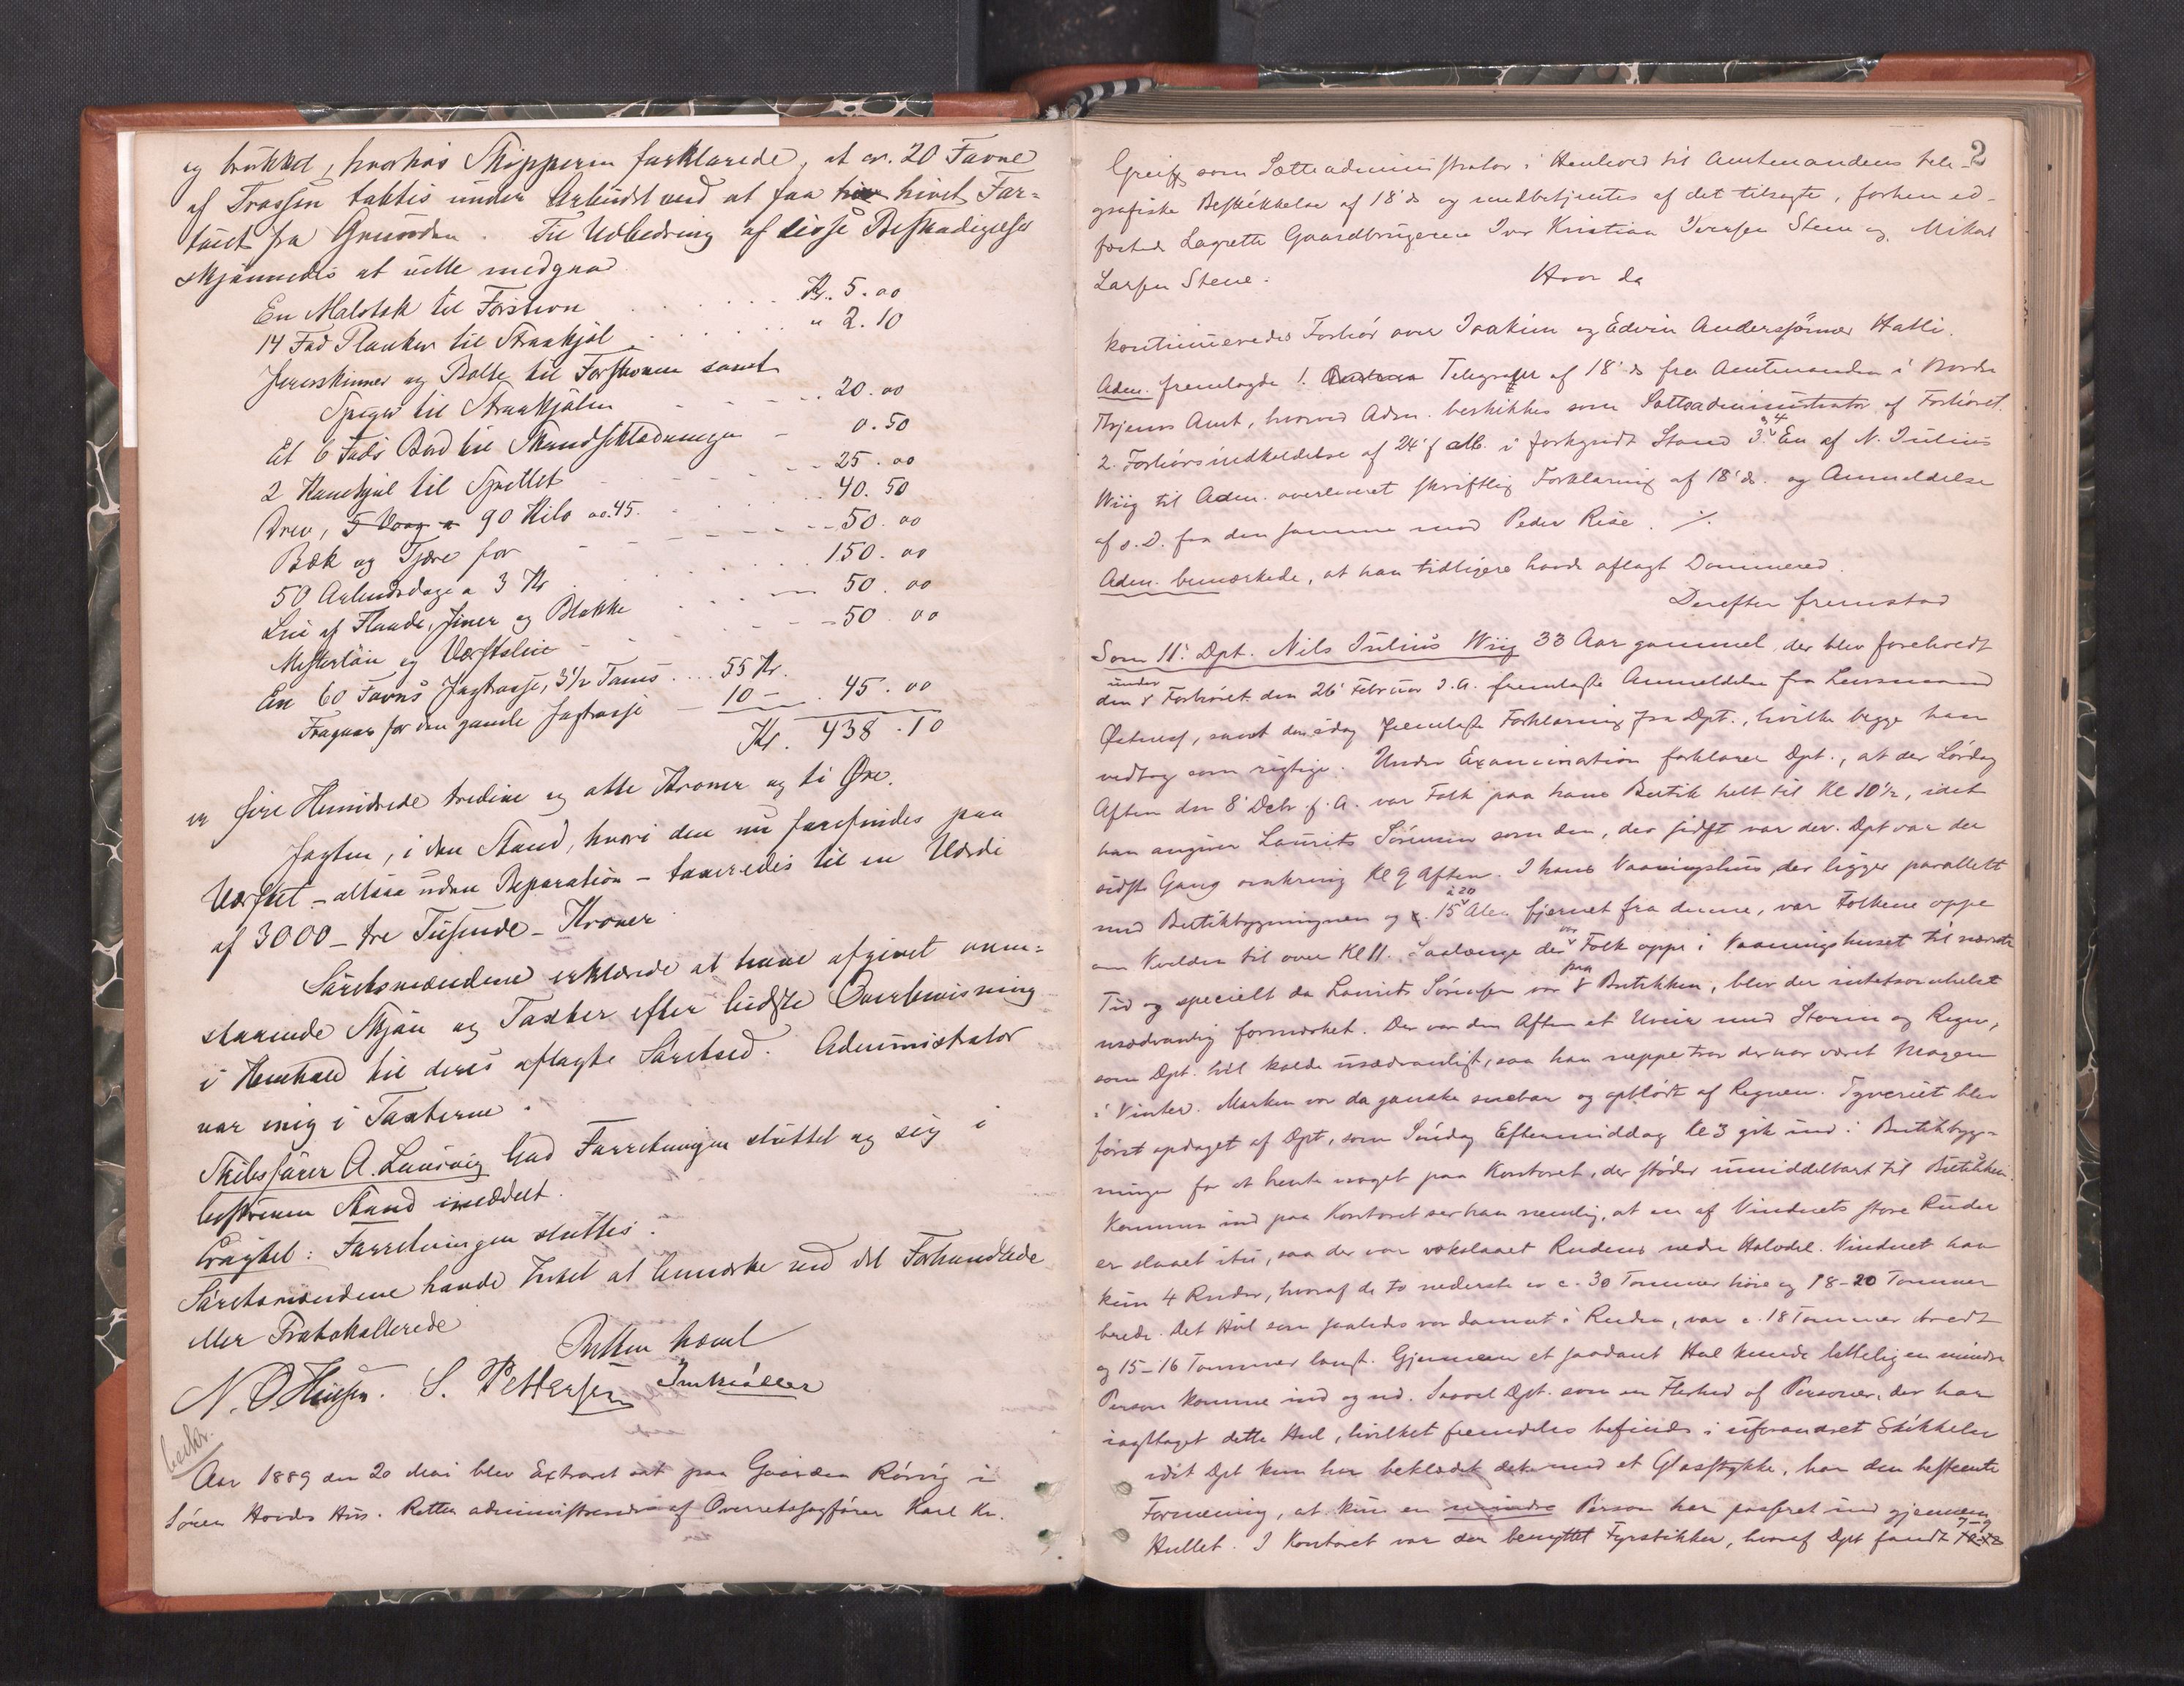 og brukket, hvorhos Skipperen forklarede, at ca. 20 Favne
af Trossen taktes under Arbeidet med at faa hivet Far-
tøiet fra Grunden. Til Udbedring af disse Beskadigelser
skjønnedes at ville medgaa
En Malotsk til Forstevn . . . . Kr. 5.00
14 Fod Planker til Straakjøl . . . " 2.10
Jernskinner og Bolte til Forstevnen samt
Spiger til Straakjølen - - - - 20.00
Et 6 Fods Bord til Skandseklædningen - 0.50
2 Knækjøl til Spillet - - - 25.00
Drev, 5 Voog a 90 Kilo oo.45. - - 40.50
Bæk og Tjære for - - - - 50.00
50 Arbeidsdage a 3 Kr . . . . 150.00
Leie af Flaade, Jiner og Blokke . . . 50.00
Mesterløn og Værftsleie - - - 50.00
En 60 Favns Jagtrosse, 3½ Toms .... 55 Kr.
Fragaar for den gamle Jagtrosse - 10 — 45.00
Kr. 438.10
er fire Hundrede tredive og otte Kroner og ti Øre.
Jagten, i den Stand, hvori den nu forefindes paa
Værftet - altsaa uden Reparation - taxeredes til en Værdi
af 3000 - tre Tusende - Kroner
Søretsmændene erklærede at have afgivet oven-
staaende Skjøn og Taxter efter bedste Overbevisning
i Henhold til deres aflagte Søretsed. Administrator
var enig i Taxterne.
Skibsfører A. Lausvig bad Forretningen sluttet og sig i
beskreven Stand meddelt.
Eragtet: Forretningen sluttes.
Søretsmændene havde Intet at bemærke ved det Forhandlede
eller Protokollerede
Retten hævet
N. O Hansen. S. Pettersen
beskr.
Aar 1889 den 20 Mai blev Extraret sat paa Gaarden Rörvig i
Sören Hovdes Hus. Retten administreredes af Overretssagförer Karl Kr.
2
Greiff som Sætteadministrator i Henhold til Amtmandens tele-
grafiske Beskikkelse af 18' ds og medbetjentes af det tilsagte, forhen ed-
fæstede Lagrette Gaardbrugerne Iver Kristian Iversen Stene og Mikal
Larsen Stene.
Hvor da
kontinueredes Forhör over Joakim og Edvin Anderssönner Hatli.
Adm. fremlagde 1. Telegram af 18' ds fra Amtmanden i Nordre
Thjems Amt, hvorved Adm. beskikkes som Sætteadministrator af Forhöret.
2. Forhörsindkaldelse af 24' f Mts. i forkyndt Stand 3. & 4 En af N. Julius
Wiig til Adm. overleveret skriftlig Forklaring af 18' ds. og Anmeldelse
af s. D. fra den samme mod Peder Rise. ./.
Adm. bemærkede, at han tidligere havde aflagt Dommered.
Derefter fremstod
Som 11' Dpt. Nils Julius Wiig 33 Aar gammel, der blev foreholdt
den under Forhöret den 26' Februar d.A. fremlagte Anmeldelse fra Lensmand
Östnes, samt den idag fremlagte Forklaring fra Dpt., hvilke begge han
vedtog som rigtige. Under Examination forklarer Dpt., at der Lördag
Aften den 8' Debr f. A. var Folk paa hans Butik helt til Kl 10½, idet
han angiver Laurits Sörensen som den, der sidst var der. Dpt var der
sidste Gang omkring Kl 9 Aften. I hans Vaaningshus, der ligger parallelt
med Butikbygningen og c. 15 à 20 Alen fjernet fra denne, var Folkene oppe
om Kvelden til over Kl 11. Saalænge der var Folk oppe i Vaaningshuset til nævnte
Tid og specielt da Laurits Sörensen var paa Butikken, blev der intetsomhelst
usædvanlig formærket. Der var den Aften et Uveir med Storm og Regn,
som Dpt. vil kalde usædvanligt, saa han neppe tror der har været Magen
i Vinter. Marken var da ganske snebar og oplödt af Regnen. Tyveriet blev
först opdaget af Dpt, som Söndag Eftermiddag Kl 3 gik ind i Butikbyg-
ningen for at hente noget paa Kontoret, der stöder umiddelbart til Butikken.
Kommen ind paa Kontoret ser han nemlig, at en af Vinduets store Ruder
er slaaet itu, saa der var vækslaaet Rudens nedre Halvdel. Vinduet har
kun 4 Ruder, hvoraf de to nederste er c. 30 Tommer höie og 18-20 Tommer
brede. Det Hul som saaledes var dannet i Ruden, var c. 18 Tommer bredt
og 15-16 Tommer langt. Gjennem et saadant Hul kunde lettelig en mindre
Person komme ind og ud. Saavel Dpt. som en Flerhed af Personer, der har
iagttaget dette Hul, hvilket fremdeles befinder i uforandret Skikkelse
idet Dpt kun har beklædt det med et Glasstykke, har den bestemte
Formening, at kun en mindre Person har passeret ind gjennem
Hullet. I Kontoret var der benyttet Fyrstikker, hvoraf Dpt fandt 7-9